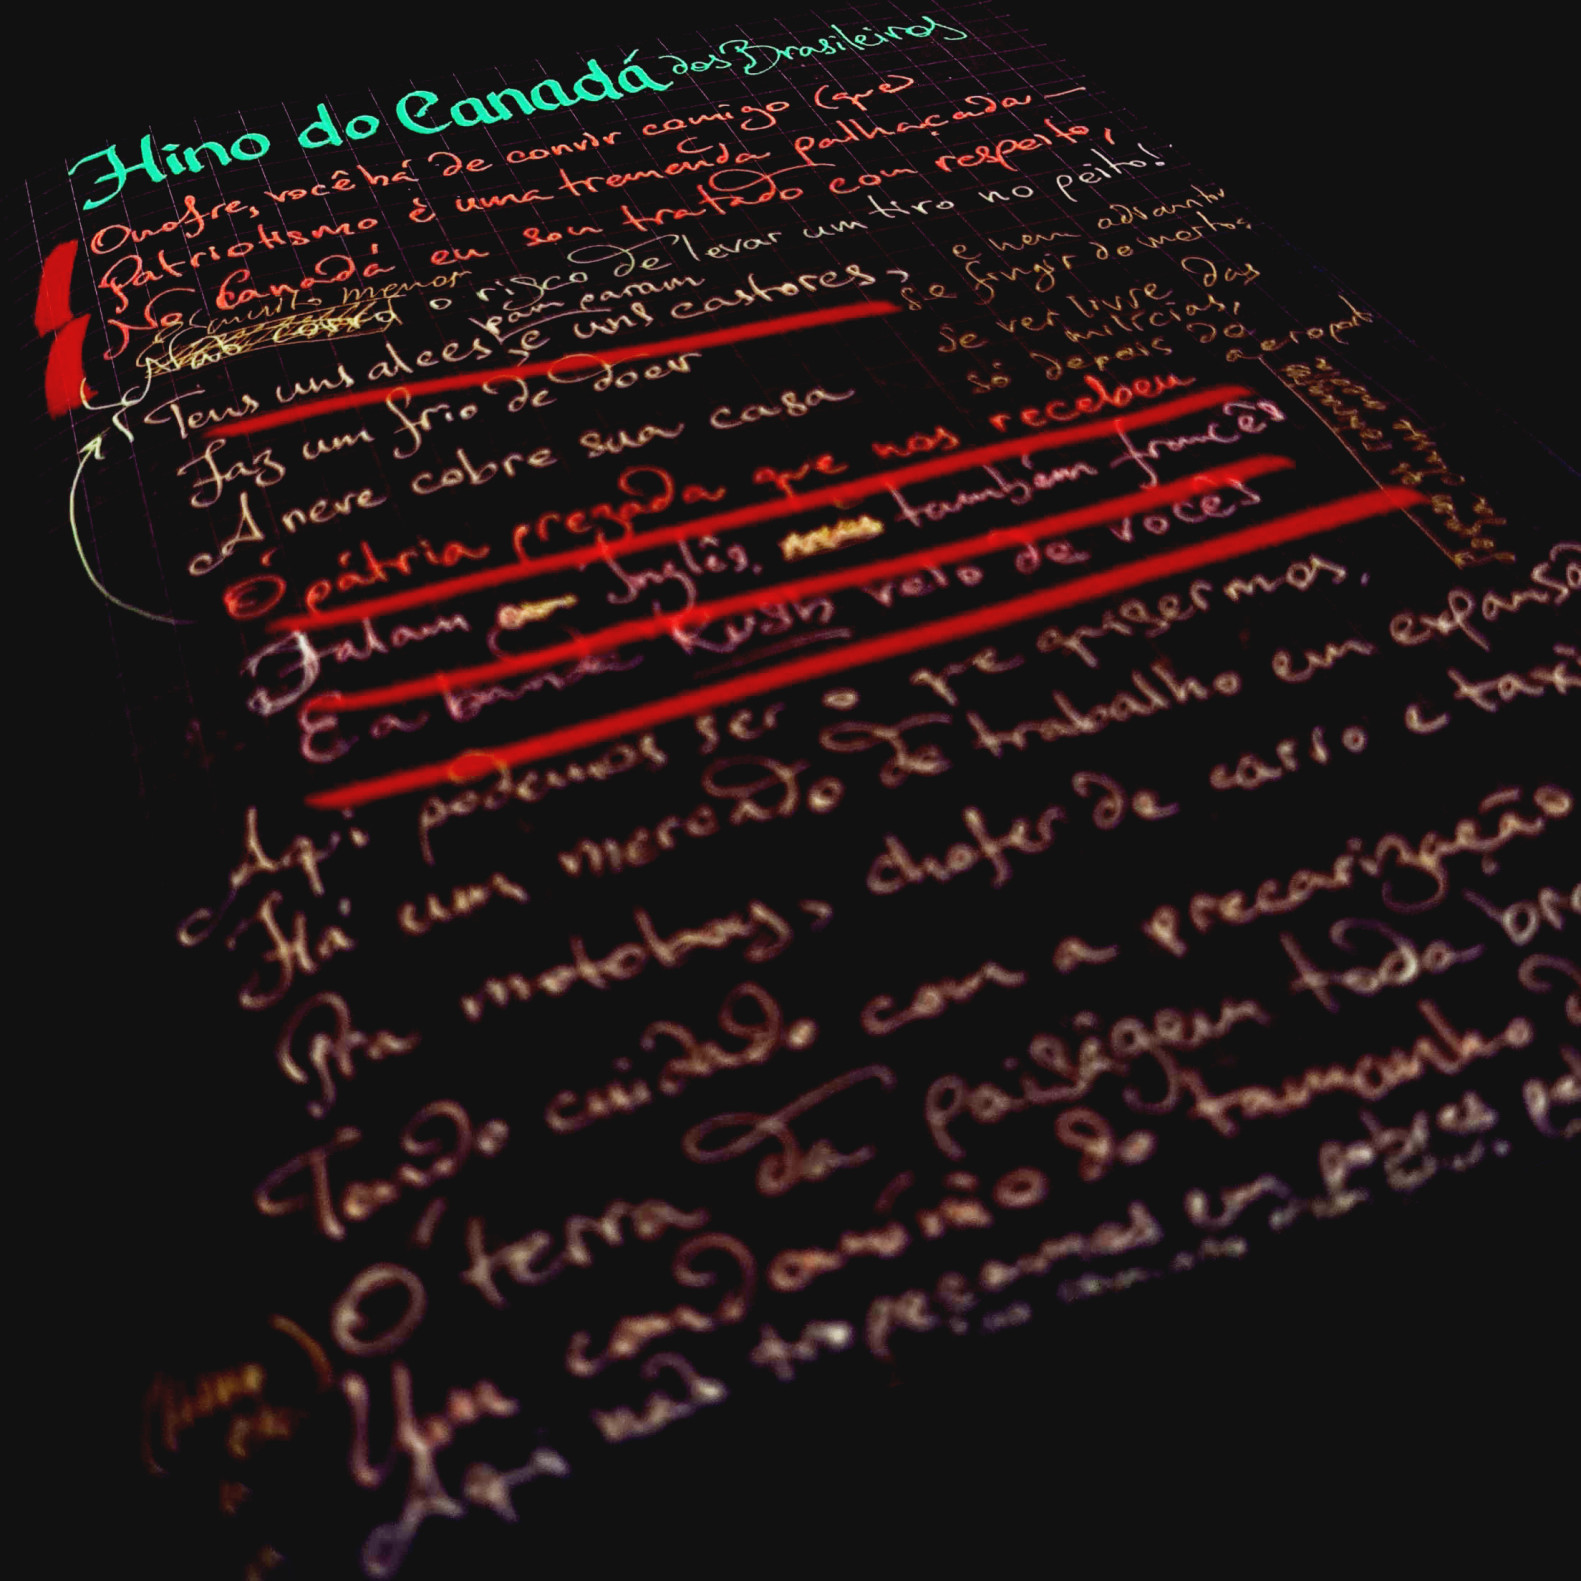 Hino do Canadá dos Brasileiros
Onofre, você há de convir comigo (que)
Patriotismo é uma tremenda palhaçada —
No Canadá eu sou tratado com respeito,
É muito menor o risco de levar um tiro no peito!
Tens uns alces pam param
e uns castores,
Faz um frio de doer
A neve cobre sua casa
Ó pátria prezada que nos recebeu
Falam Inglês, também francês
E a banda Rush veio de vocês
Aqui podemos ser o que quisermos,
Há um mercado de trabalho em expansão
Pra motoboys, chofer de carro e táxi
Tendo cuidado com a precarização
Ó terra da paisagem toda
Um condomínio do tamanho
Aqui não tropeçamos em pobres
e nem adianta
se fingir de morto,
se ver livre das
milícias,
só depois do
aeroporto